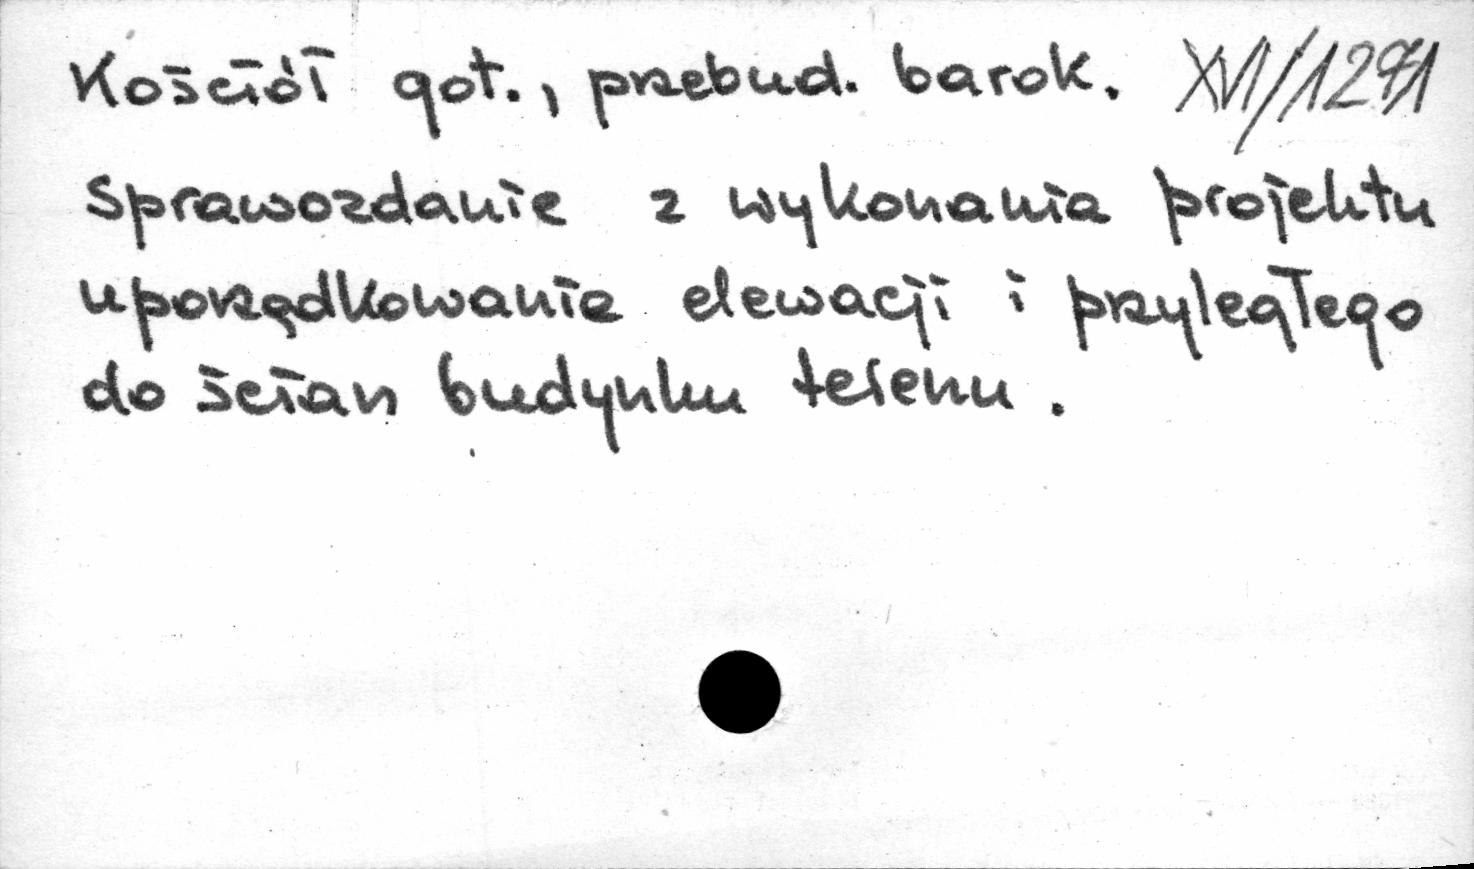 Kościół got., przebud. barok. XVI/1291
Sprawozdanie z wykonania projektu
uporządkowanie elewacji i przyległego
do ścian budynku terenu.